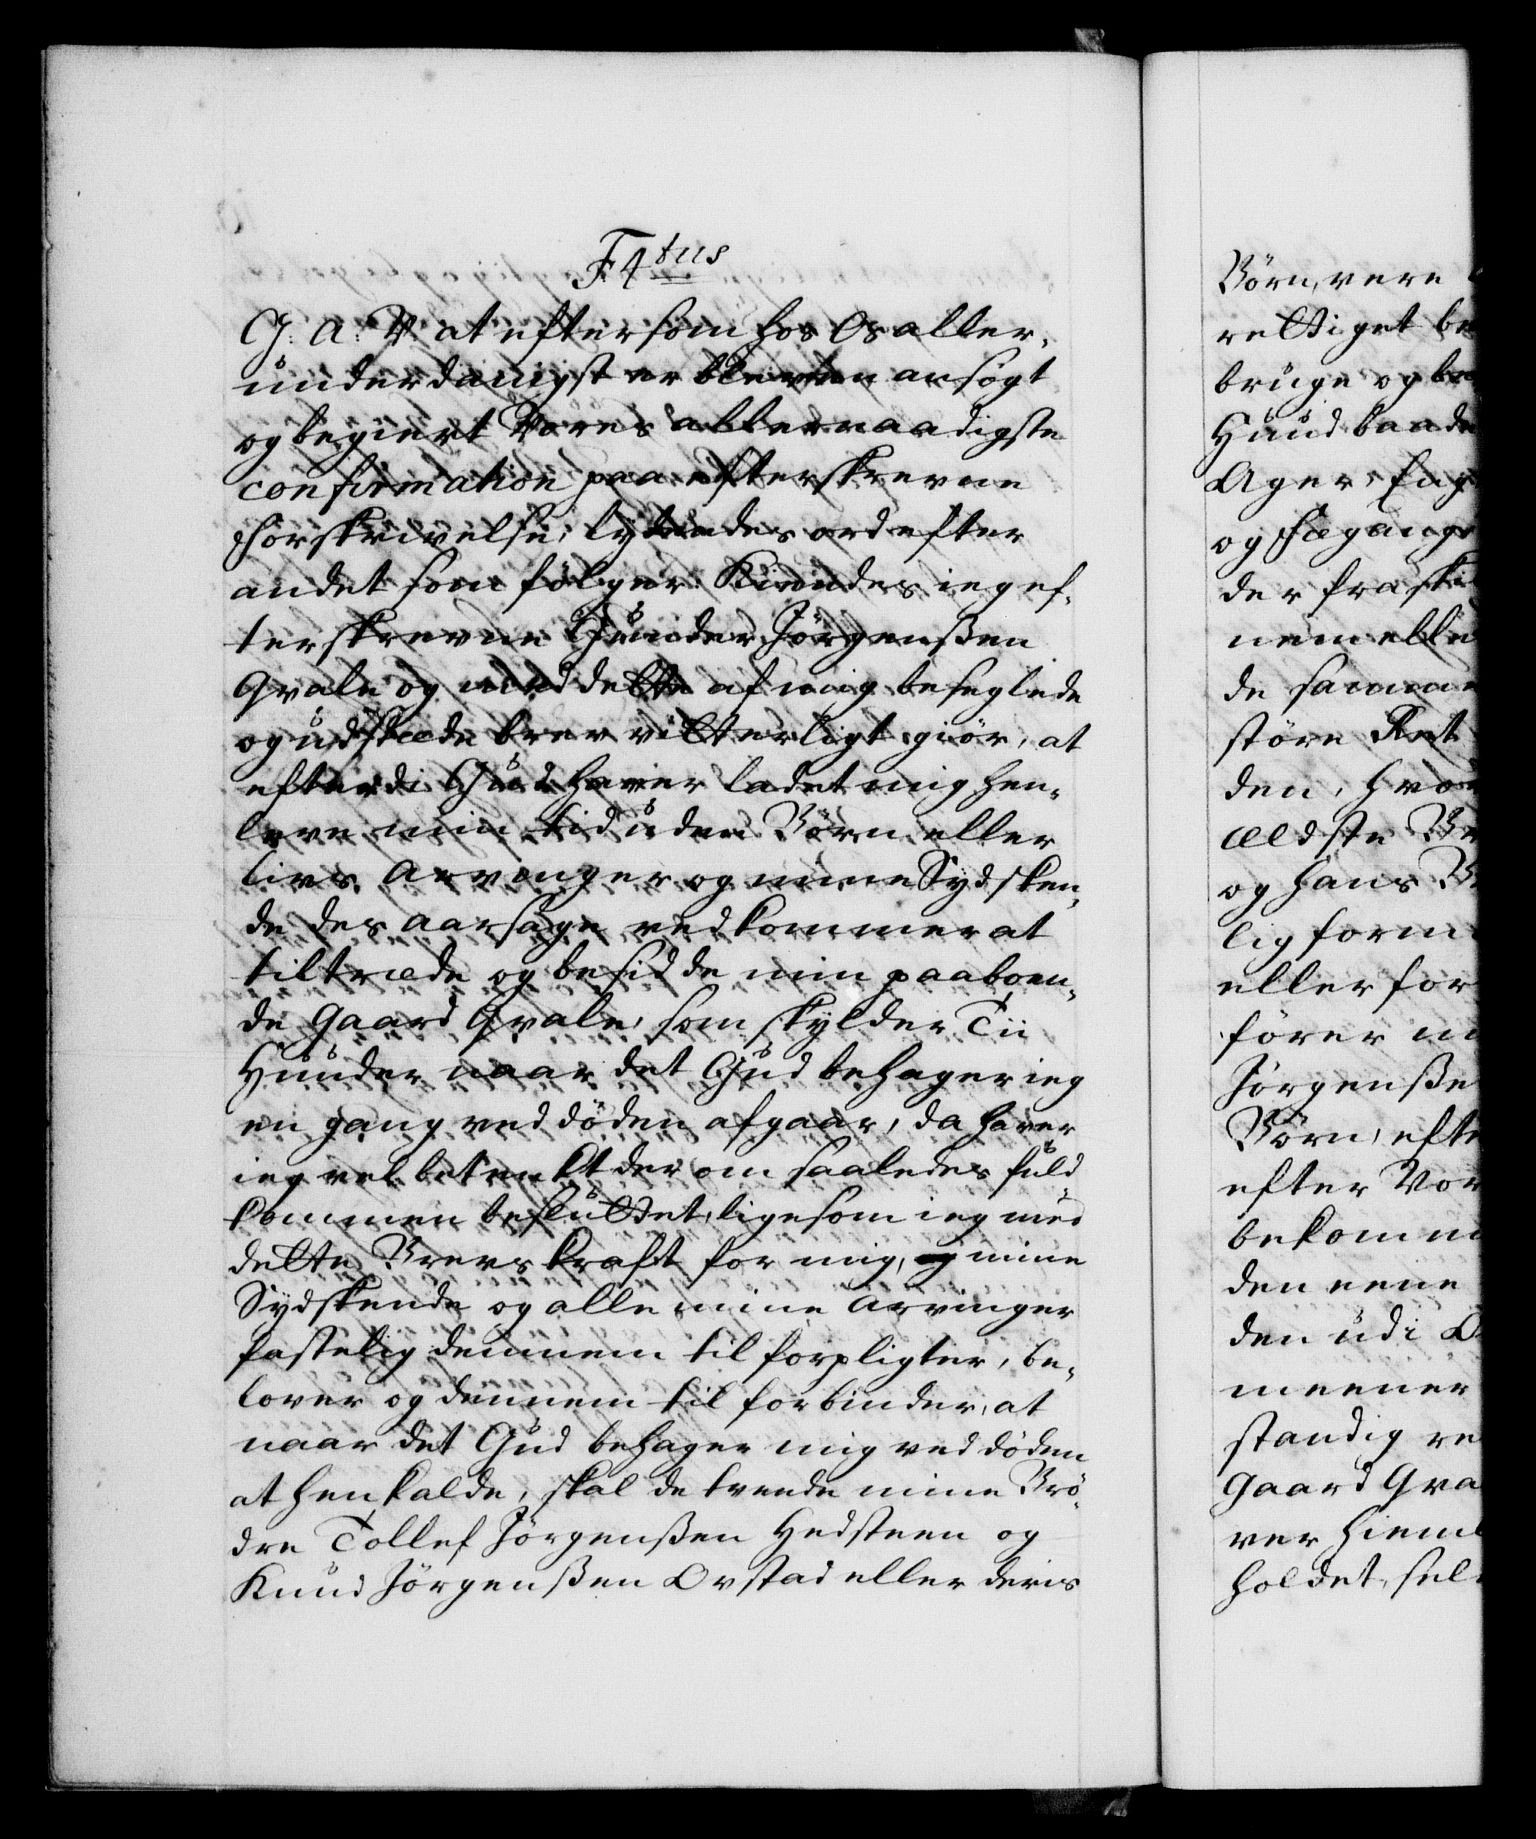 F. 4tus
G: A: V: at eftersom hos Os aller,
underdanigst er bleven ansøgt
og begiert Vores allernaadigste
confirmation paa efterskrevne
Forskrivelse, lydendes ord efter
andet som følger: Kiendes ieg ef,
terskrevne Gunder Jörgenßen
Qvale og med dette af mig beseglede
og udstæde brev vitterligt giör, at
efterdi Gud haver ladet mig hen,
leve min tid uden Börn eller
livs Arvinger og mine Sydsken,
de des aarsage vedkommer at
tiltræde og besidde min paaboen,
de Gaard Qvale, som skylder Tii
Hunder naar det Gud behager ieg
en gang ved döden afgaar, da haver
ieg vel betenkt der om saaledes fuld
kommen besluttet, ligesom ieg med
dette Brevs kraft for mig, og mine
Sydskende og alle mine Arvinger
fastelig dennem til forpligter, be,
lover og dennem til forbinder, at
naar det Gud behager mig ved döden
at henkalde, skal de tvende mine Brö,
dre Tollef Jörgenßen Hedsteen og
Knud Jörgenßen Ovstad eller deris
Börn, være
rettiget be
bruge og be
Hund baade
Ager, Eng
og Fægang
der fra ski
nem elle
de samme
störe Ret
den, hvor
ældste Br
og hans B
lig form
eller for
förer m
Jörgenße
Börn, efte
efter Vor
bekomm
den eene
den udi O
meener
standig re
Gaard Qva
ver hiemb
holdet, sel